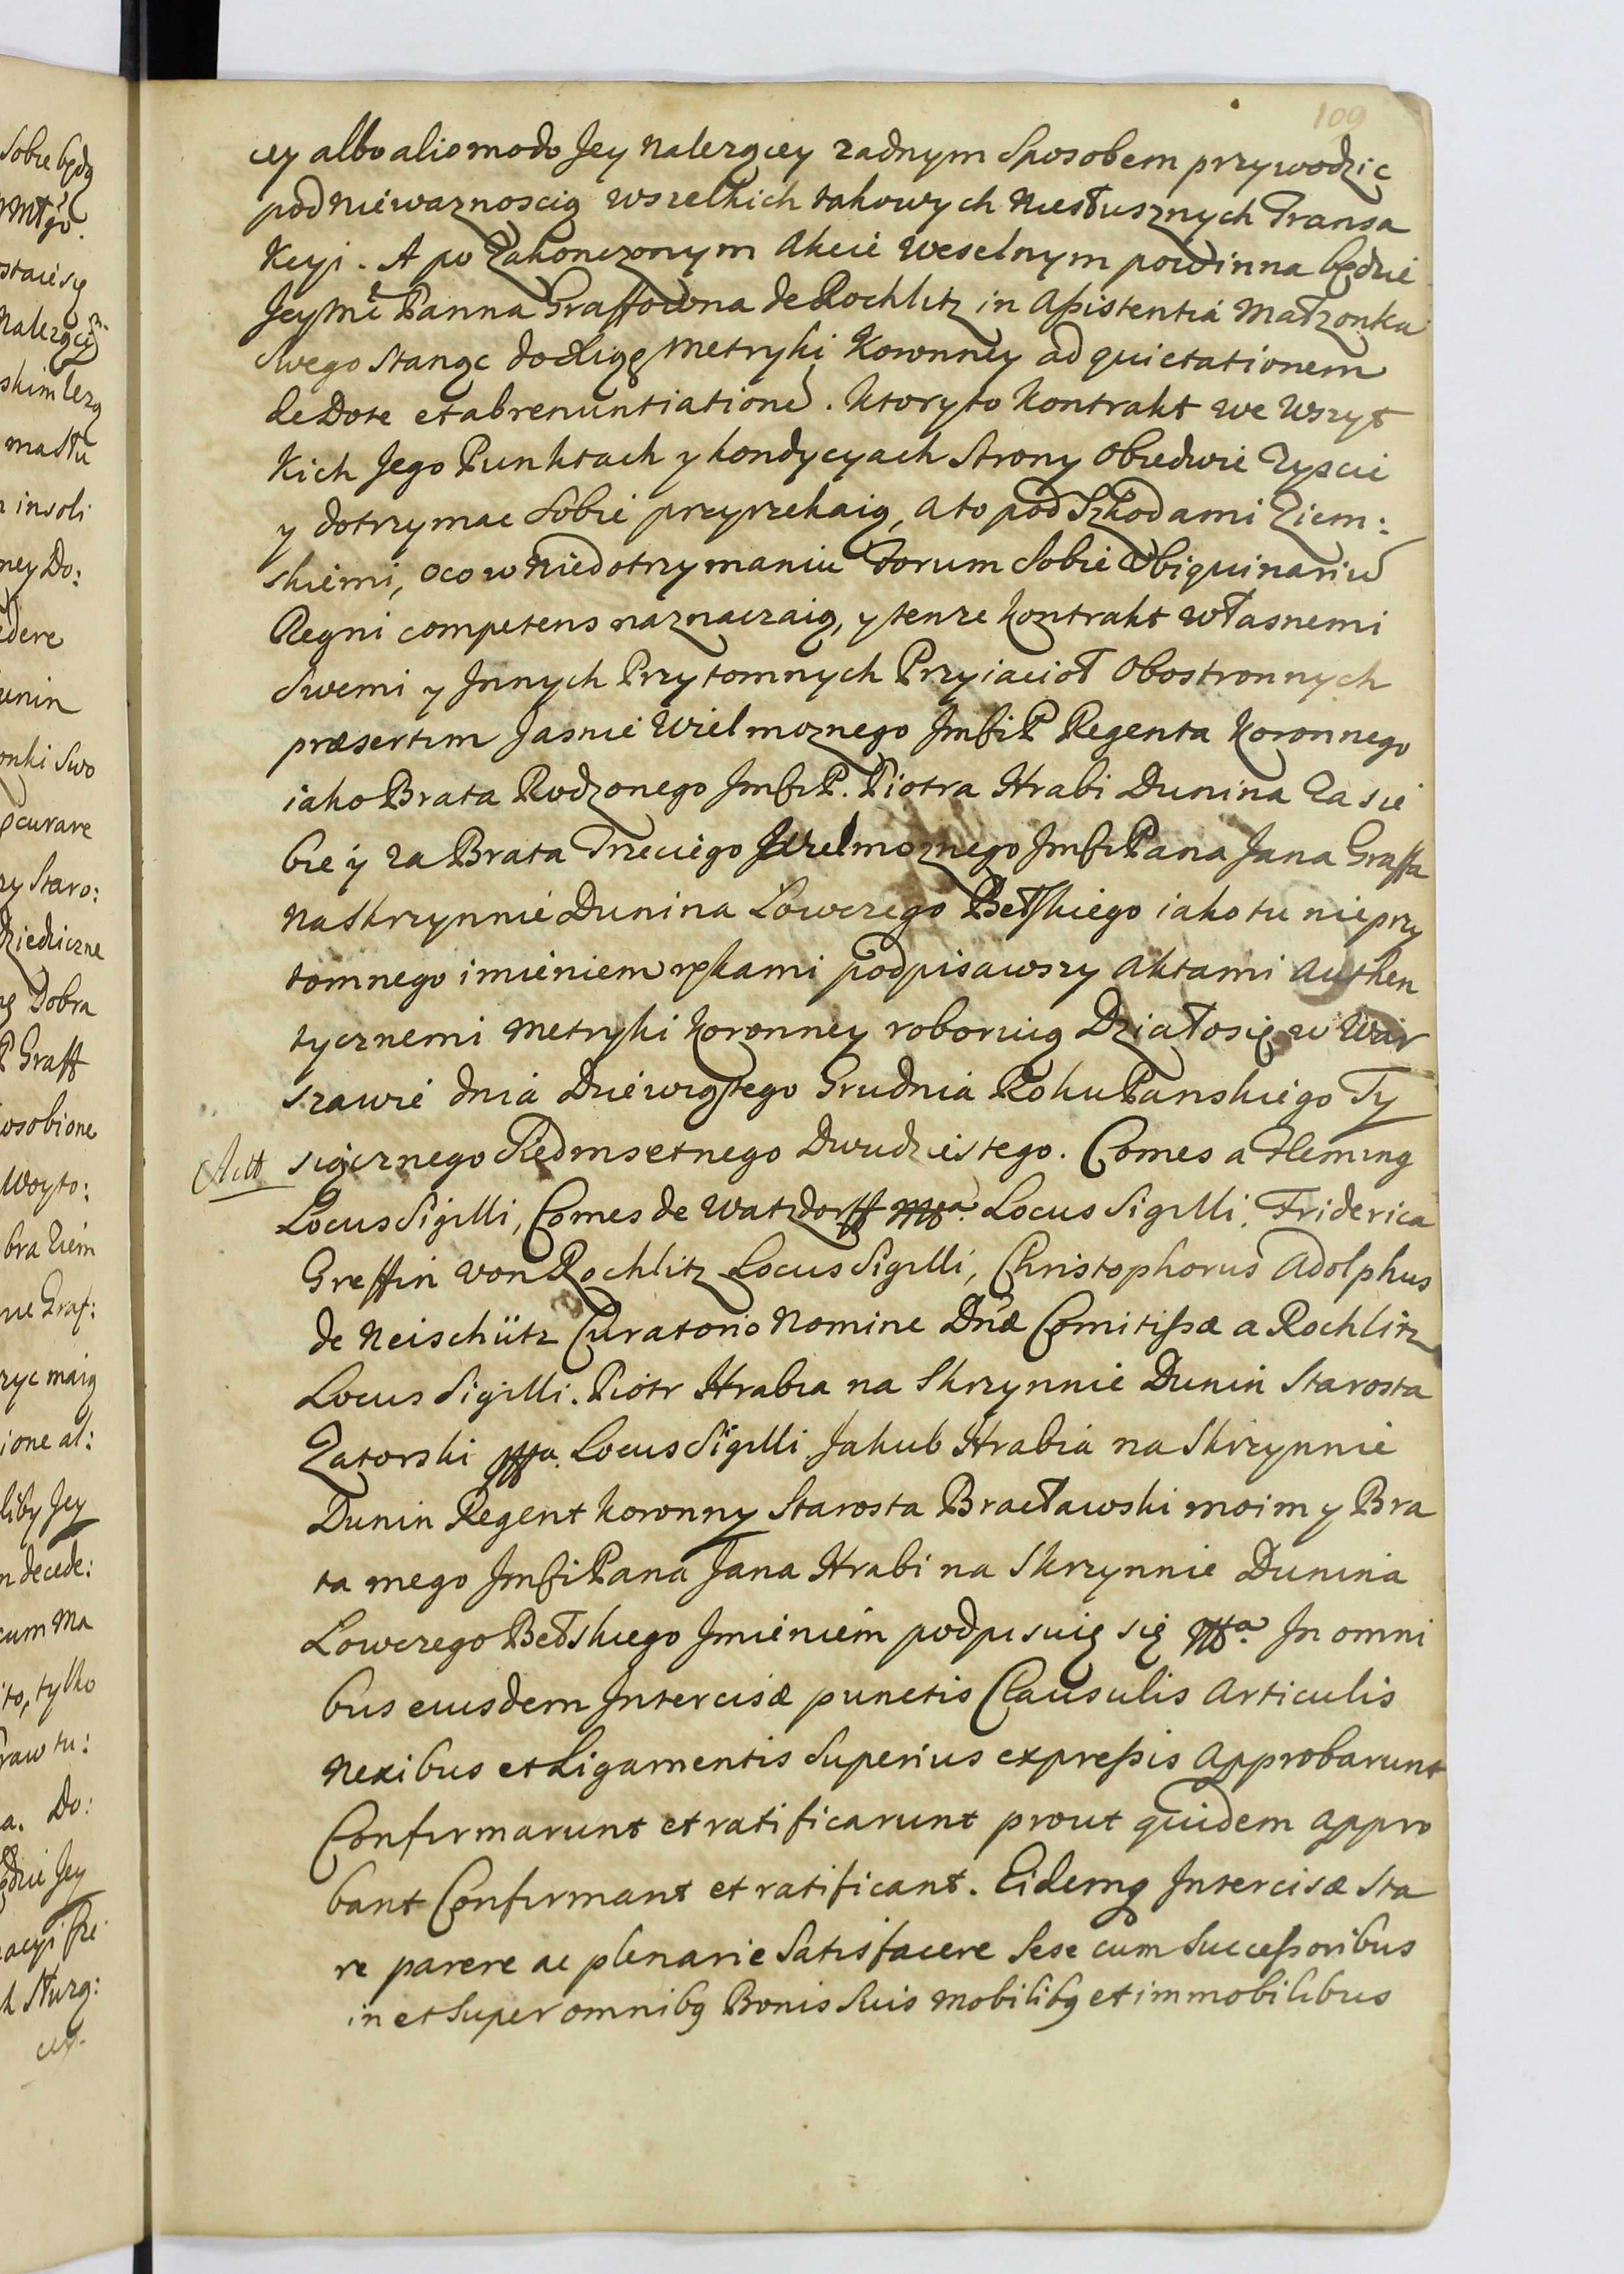 109
cey albo alio modo Jey nalezącey zadnym sposobem przywodzic
pod niewaznoscią wszelkich takowych niesłusznych Transa
kcyi. A po zakonczonym akcie weselnym powinna będzie
Jeymć Panna Graffowna de Rochlitz in Assistentia Małzonka
swego stanąc do Xiąg Metryki Koronney ad quietationem
de Dote et abrenuntiationē. Ktoryto Kontrakt we wszyt
kich Jego Punktach y kondycyach strony obiedwie zyscie
y dotrzymac sobie przyrzekaią, a to pod Szkodami Ziem:
skiemi, oco w niedotrzymaniu Forum sobie ubiquinariū
Regni competens naznaczaią, y tenze kontrakt własnemi
swemi y Jnnych Przytomnych Przyiacioł obostronnych
præsertim Jasnie Wielmoznego Jmći P Regenta koronnego
iako Brata Rodzonego Jmći P. Piotra Hrabi Dunina za sie
bie y za Brata Trzeciego Wielmoznego Jmći Pana Jana Graffa
na Skrzynnie Dunina Lowczego Bełskiego iako tu nieprzy
tomnego imieniem rękami podpisawszy Aktami Authen
tycznemi Metryki koronney roboruią Działo się w War
szawie dnia Dziewiątego Grudnia Roku Panskiego Ty
siącznego Siedmsetnego Dwudziestego. Comes a Fleming
Locus Sigilli, Comes de Watzdorff mpa. Locus Sigilli, Friderica
Greffin von Rochlitz Locus Sigilli, Christophorus Adolphus
de Neischütz Curatorio Nomine Dnæ Comitissæ a Rochlitz
Locus Sigilli. Piotr Hrabia na Skrzynnie Dunin Starosta
Zatorski mpa. Locus Sigilli Jakub Hrabia na Skrzynnie
Dunin Regent koronny Starosta Bracławski moim y Bra
ta mego Jmći Pana Jana Hrabi na Skrzynnie Dunina
Lowczego Bełskiego Jmieniem podpisuię się mpa. Jn omni
bus eiusdem Jntercisæ punctis Clausulis Articulis
Nexibus et Ligamentis superius expressis Approbarunt
Confirmarunt et ratificarunt prout quidem appro
bant Confirmant et ratificant. Eidemq Jntercisæ sta
re parere ac plenarie satisfacere sese cum successoribus
in et super omnibq Bonis suis mobilibq et immobilibus